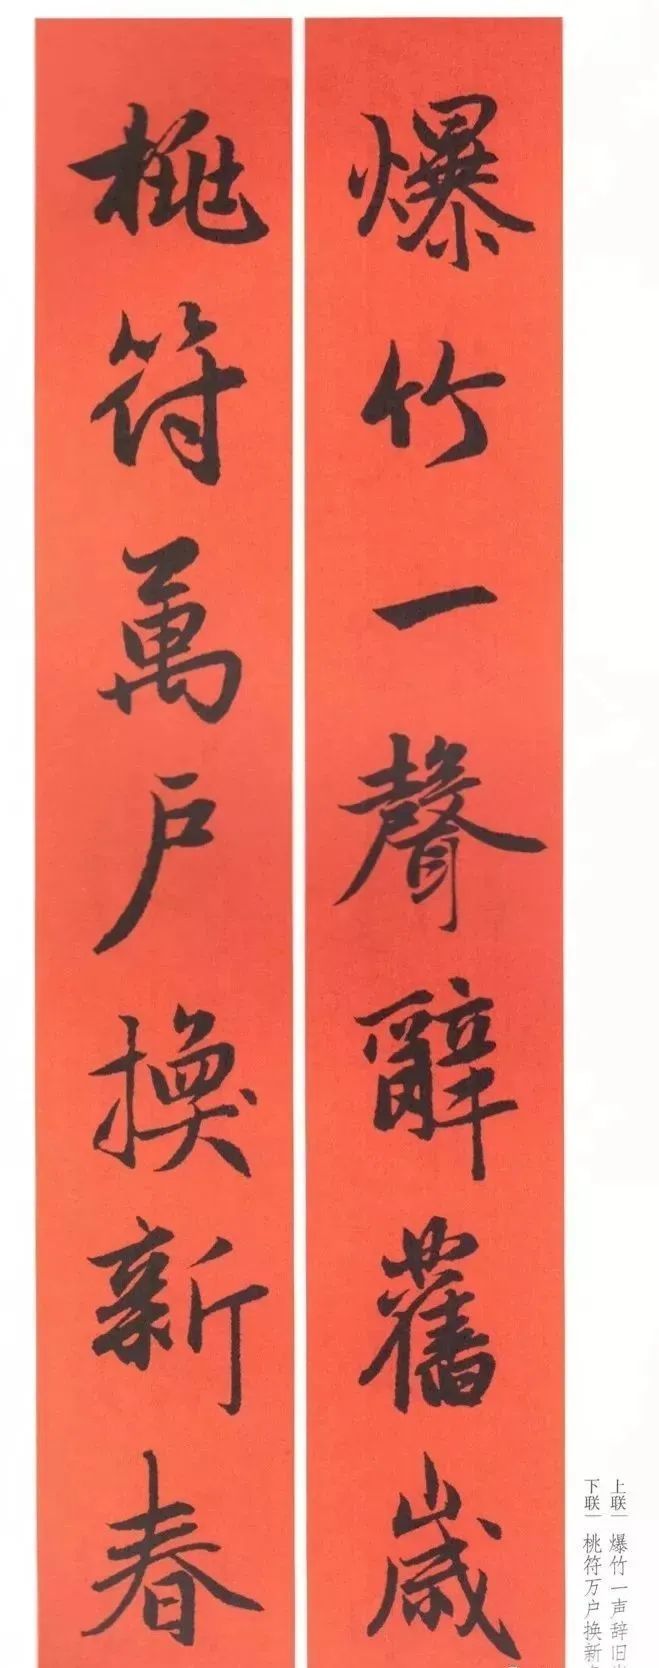 爆竹一聲辭舊歲
桃符萬户換新春
上联｜爆竹一声辞旧岁
下联｜桃符万户换新